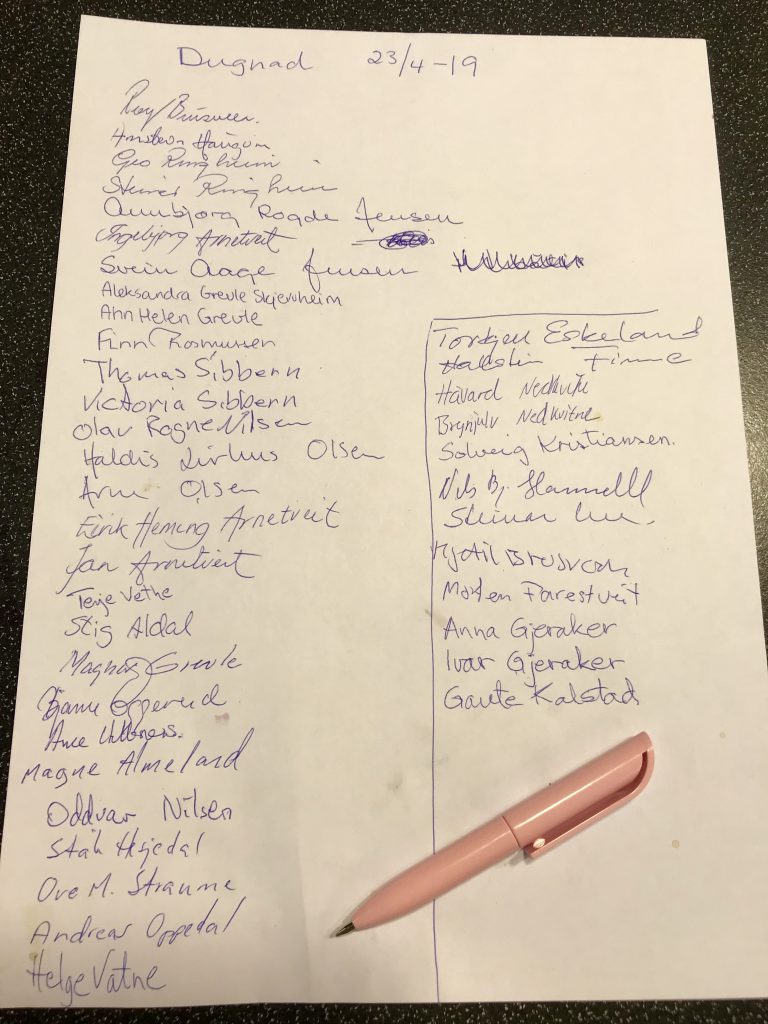 Dugnad 23/4-19
Roy
Haugum
Geo Ringheim
Steinar Ringheim
Annbjørg Rogde Jensen
Ingebjørg Arnetveit
Svein Aage Jensen
Aleksandra Grevle Skjervheim
Ann Helen Grevle
Finn Rasmussen
Thomas Sibbern
Victoria Sibbern
Olav Rogne Nilsen
Haldis Olsen
Arne Olsen
Eirik Heming Arnetveit
Jan Arnetveit
Terje Vethe
Stig Aldal
Magnar Grevle
Bjarne Opperud
Magne Almeland
Oddvar Nilsen
Ståle Hesjedal
Ove M. Straume
Andreas Oppedal
Helge Vatne
Torkjell Eskeland
Halstein Finne
Håvard Nedkvitne
Brynjulv Nedkvitne
Solveig Kristiansen.
Nils Bj.
Steinar
Kjetil
Morten Farestveit
Anna Gjeraker
Ivar Gjeraker
Gaute Kalstad